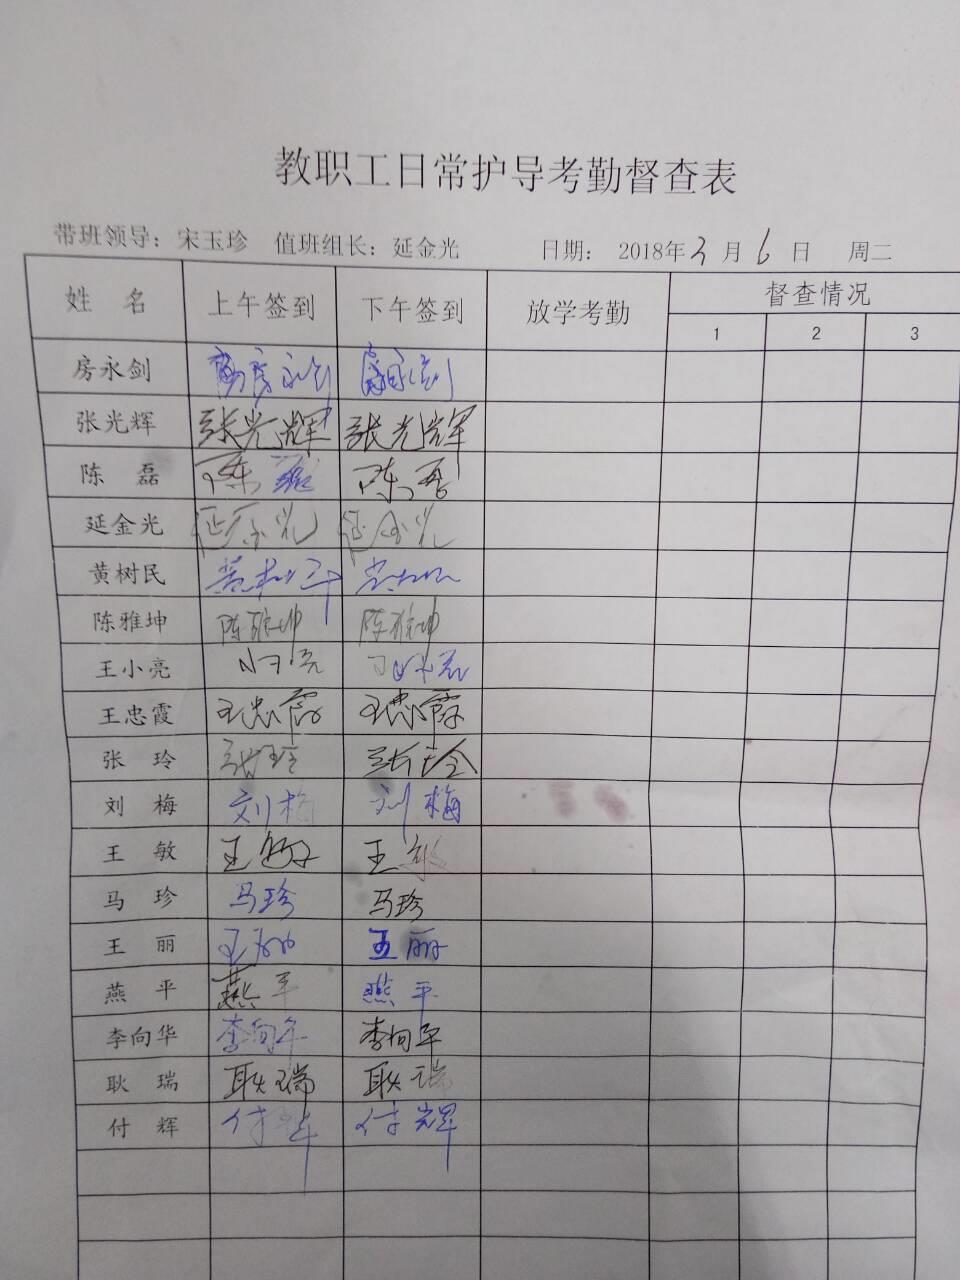 教职工日常护导考勤督查表
带班领导：宋玉珍 值班组长：延金光 日期： 2018年3月6日 周二
姓 名 上午签到 下午签到 放学考勤 督查情况
1 2 3
房永剑 房永剑 房永剑
张光辉 张光辉 张光辉
陈 磊 陈磊 陈磊
延金光 延金光 延金光
黄树民
陈雅坤 陈雅坤 陈雅坤
王小亮
王忠霞 王忠霞 王忠霞
张 玲 张玲 张玲
刘 梅 刘梅 刘梅
王 敏 王敏 王敏
马 珍 马珍 马珍
王 丽 王丽 王丽
燕 平 燕平 燕平
李向华 李向华 李向华
耿 瑞 耿瑞 耿瑞
付 辉 付辉 付辉